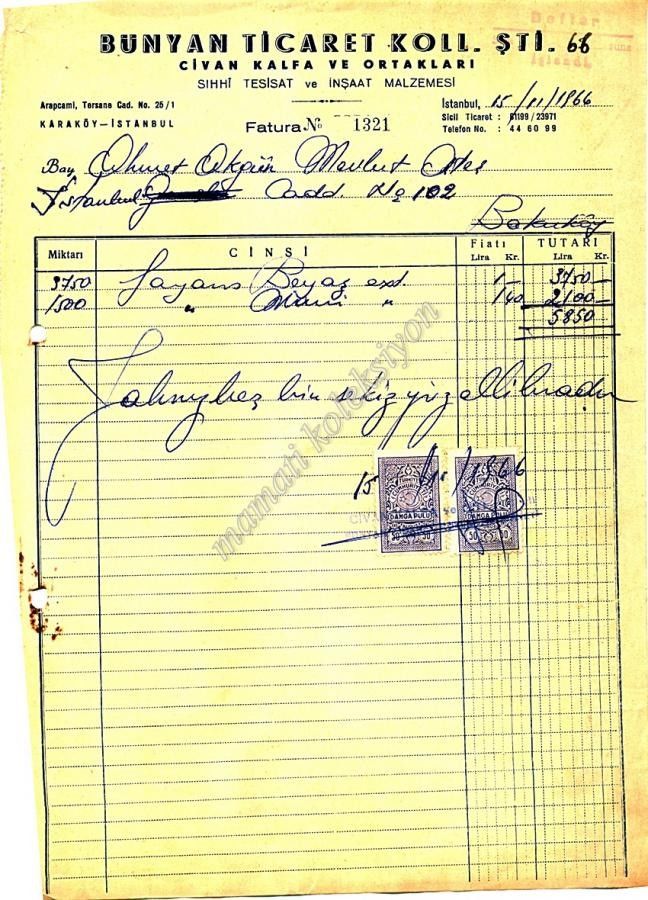 Defter
BÜNYAN TİCARET KOLL. ŞTİ. 66
CİVAN KALFA VE ORTAKLARI
SIHHÎ TESİSAT ve İNŞAAT MALZEMESİ
Arapcami, Tersane Cad. No. 25/1
KARAKÖY—İSTANBUL
Fatura No 1321
İstanbul, 15/11/1966
Sicil Ticaret : 61199/23971
Telefon No. : 44 60 99
Bay Ahmet Akgün Mevlut Ateş
İstanbul Cadd. No 102
Bakırköy
Miktarı CİNSİ Fiatı TUTARI
Lira Kr. Lira Kr.
3750 Fayans Beyaz ext. 1- 3750-
1500 " Mavi " 140 2100-
5850
Yalnız beş bin sekiz yüz elli liradır
15/11/1966
DAMGA PULU
DAMGA PULU
30 30
30 30
mamati koleksiyon